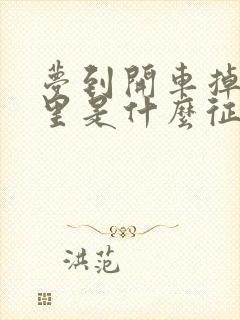 夢到開車掉
里是什麼征
洪范